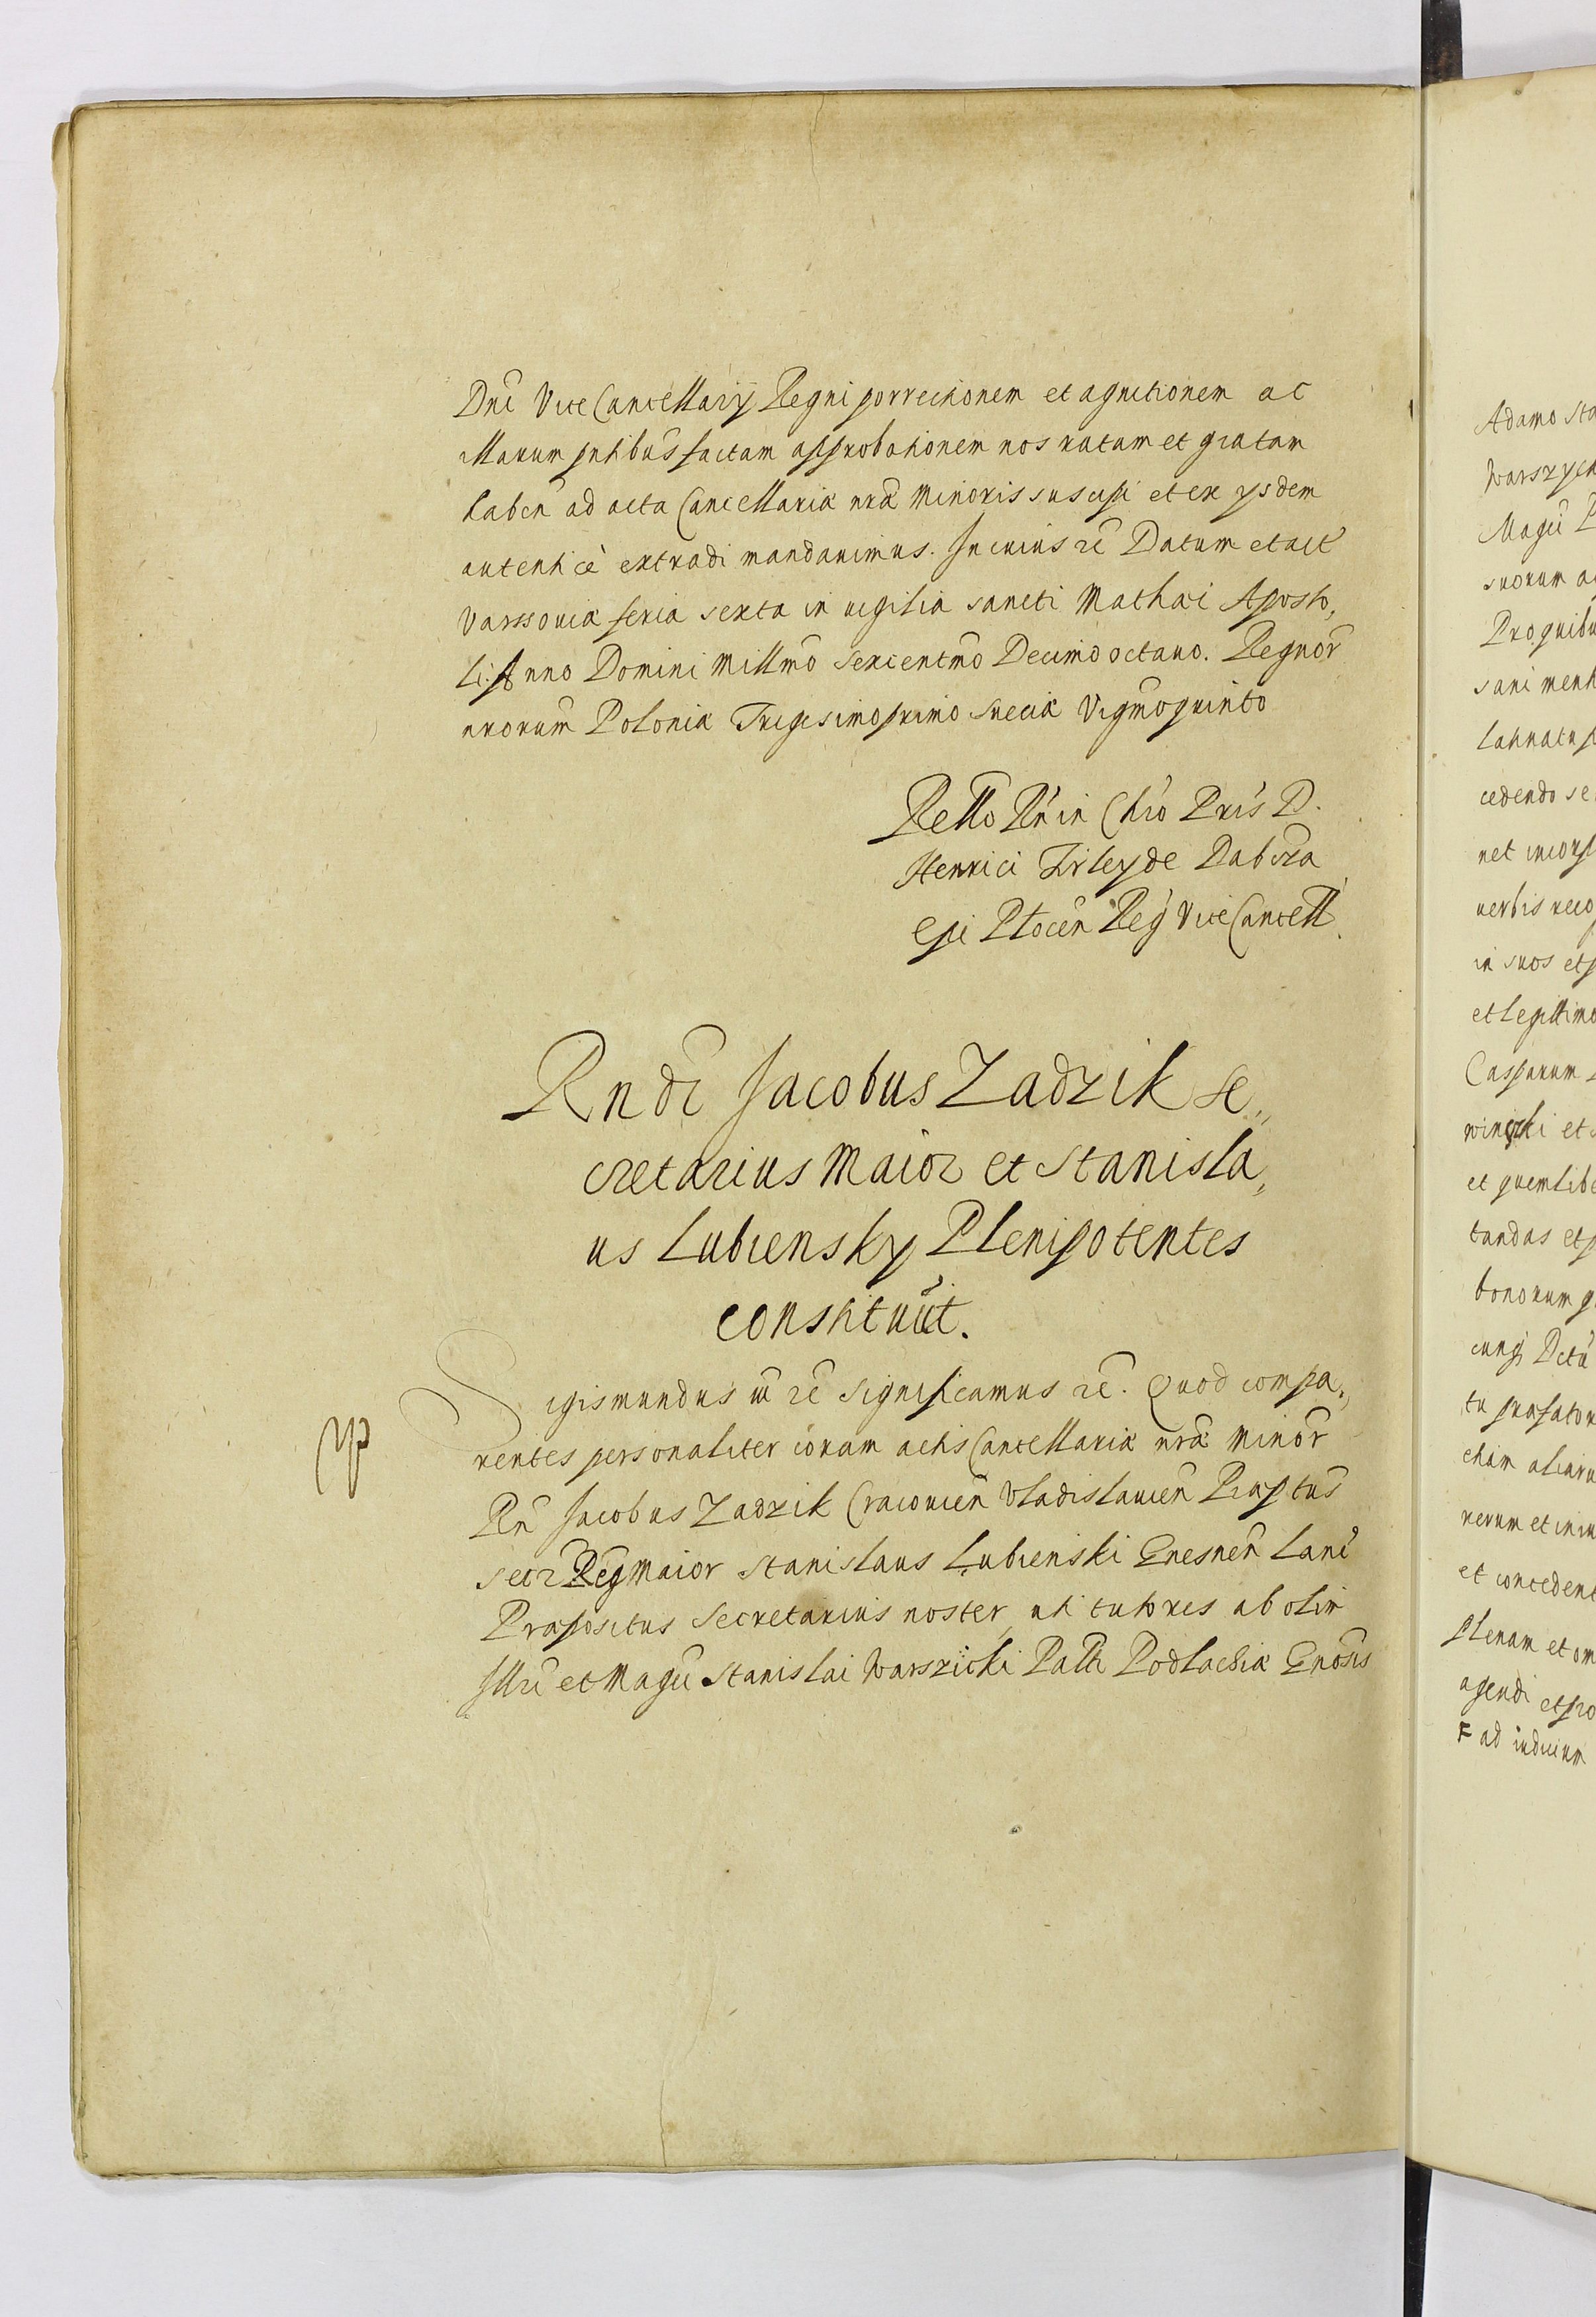 Dnĩ ViceCancellarÿ Regni porrectionem et agnitionem ac
illarum pntibus factam approbationem nos ratam et gratam
haben ad acta Cancellariæ nræ Minoris suscipi et ex ysdem
autenticè extradi mandauimus. In cuius rẽ Datum et act
Varssouiæ feria sexta in uigilia sancti Mathæi Aposto,
li. Anno Domini Millmõ Sexcentmõ Decimo octauo. Regnor̃
nrorum Poloniæ Trigesimoprimo Sueciæ Vigmõquinto
Rello Rñ in Chrõ Pris D.
Henrici Firley de Dabrza
Epi Plocen Reg ViceCancell.
Rndĩ Jacobus Zadzik Se,,
cretarius Maior et Stanisla,
us Lubiensky Plenipotentes
constituũt.
Sigismundus iii rẽ Significamus rẽ. Quod compa,
rentes personaliter coram actis Cancellariæ nræ Minor̃
Rñ Jacobus Zadzik Cracouien Vladislauien Præptus
Secr Reg Maior Stanislaus Lubienski Gnesnen Lanc
Præpositus Secretarius noster, uti tutores ab olim
Illri et Magci Stanislai Warszicki Palti Podlachiæ Gnosis
Adamo Sta
Warszyck
Magci P
suorum a
Pro quibu
sani ment
cedendo se
uerbis reco
in suos et p
et legittimo
Casparum
et quemlibe
tandas et p
bonorum q
tu præfator
etiam aliaru
rerum et iniu
et concedent
plenam et om
agendi et pro
F ad iudicium